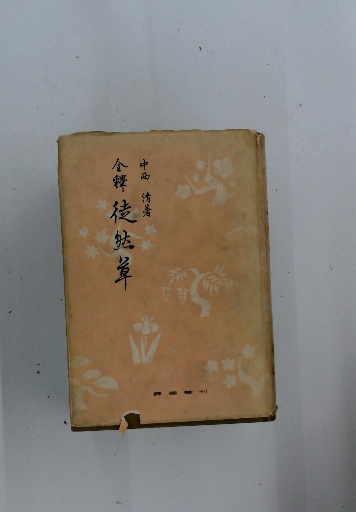 中西 清著
全釋 徒然草